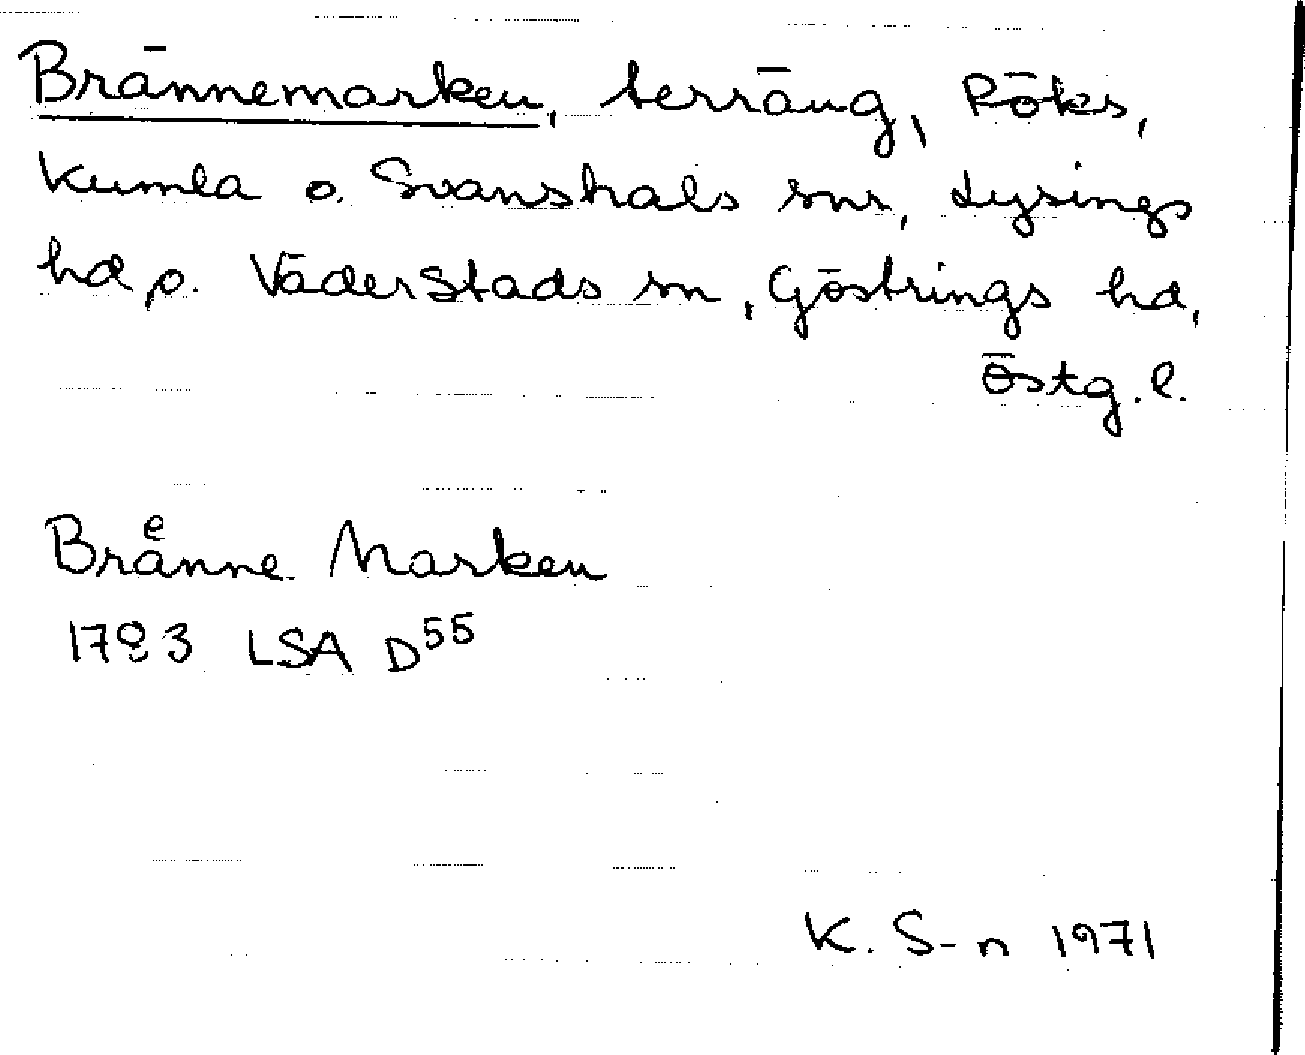 Brännemarken, terräng, Röks,
Kumla o. Svanshals snr, Lysings
hd o. Väderstads sn, Göstrings hd,
Östg. l.
Braͤnne Marken
1783 LSA D55
K. S-n 1971